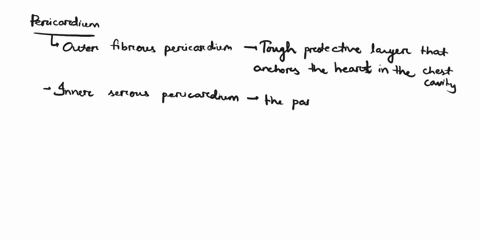 Pericardium
↳ Outer fibrous pericardium → Tough protective layer that
anchors the heart in the chest
cavity
→ Inner serious pericardium → the pa